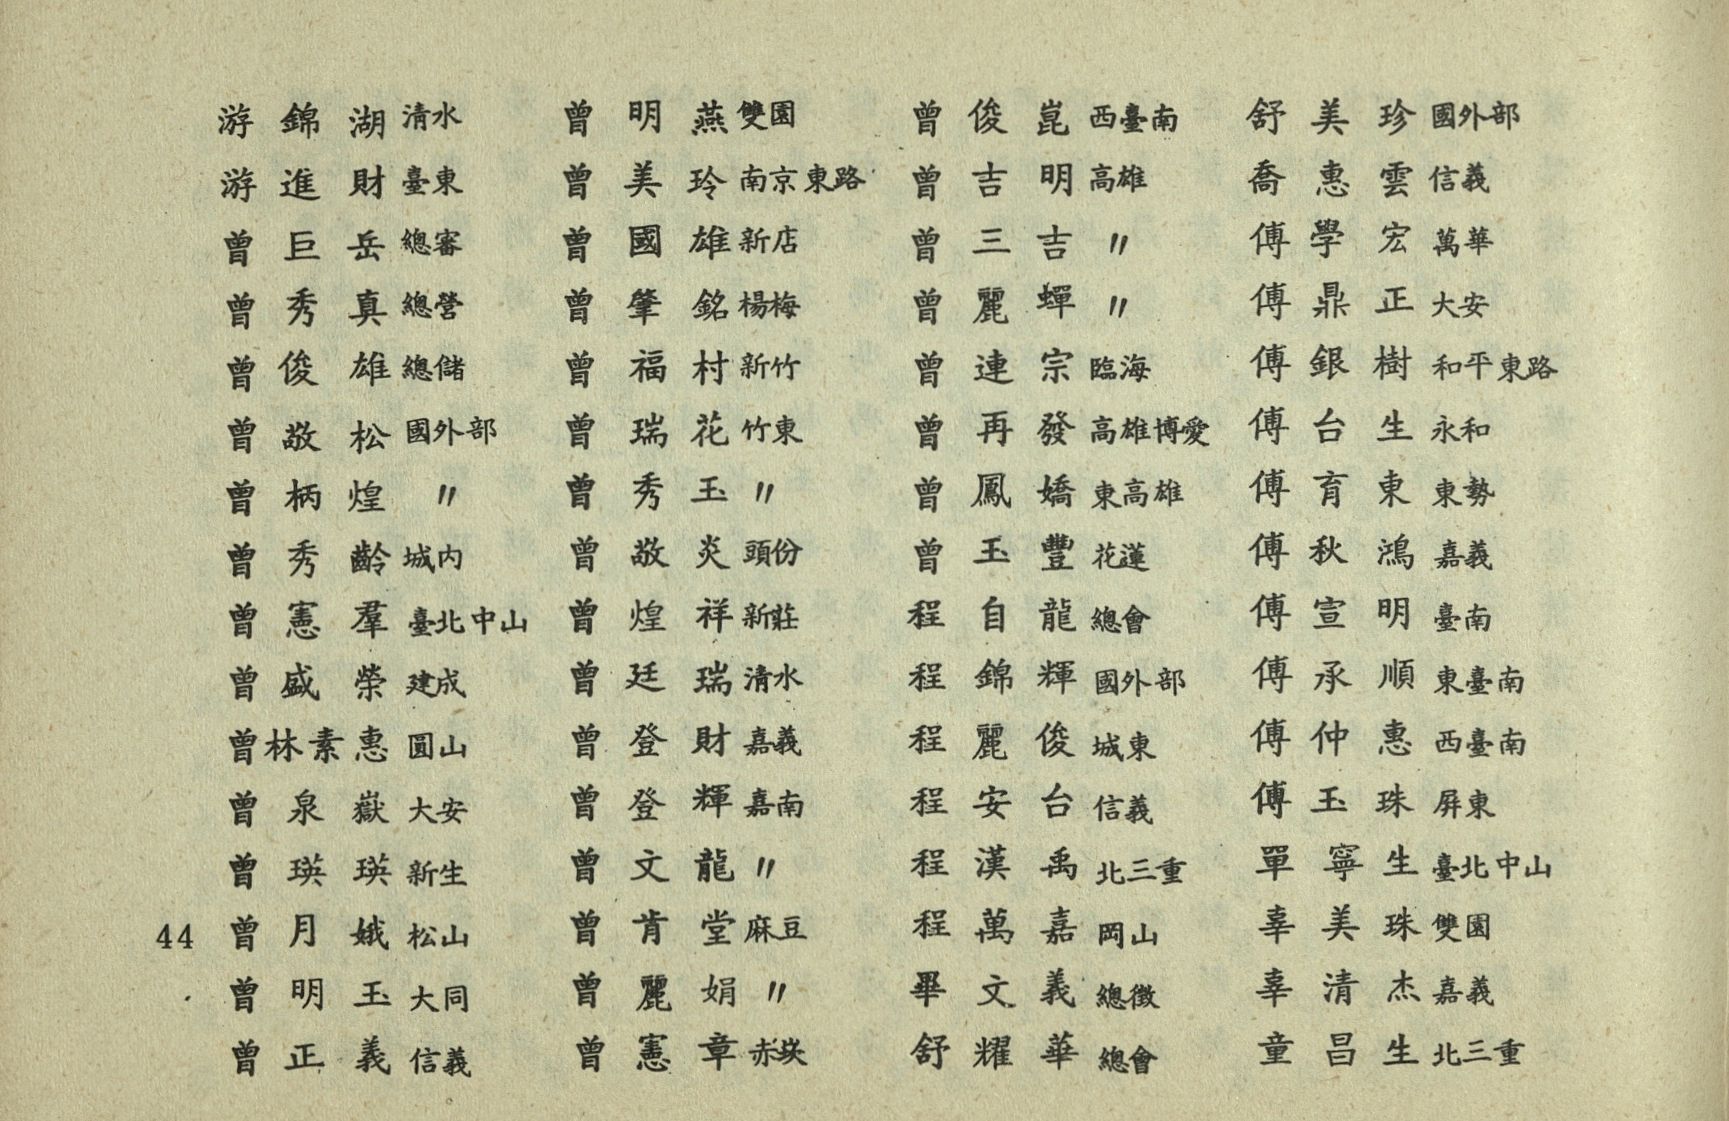 游錦湖 清水
游進財 臺東
曾巨岳 總審
曾秀真 總營
曾俊雄 總儲
曾敬松 國外部
曾柄煌 〃
曾秀齡 城内
曾憲羣 臺北中山
曾盛榮 建成
曾林素惠 圓山
曾泉嶽 大安
曾瑛瑛 新生
曾月娥 松山
曾明玉 大同
曾正義 信義
曾明燕 雙園
曾美玲 南京東路
曾國雄 新店
曾肇銘 楊梅
曾福村 新竹
曾瑞花 竹東
曾秀玉 〃
曾敬炎 頭份
曾煌祥 新莊
曾廷瑞 清水
曾登財 嘉義
曾登輝 嘉南
曾文龍 〃
曾肯堂 麻豆
曾麗娟 〃
曾憲章 赤崁
曾俊崑 西臺南
曾吉明 高雄
曾三吉 〃
曾麗蟬 〃
曾連宗 臨海
曾再發 高雄博愛
曾鳳嬌 東高雄
曾玉豐 花蓮
程自龍 總會
程錦輝 國外部
程麗俊 城東
程安台 信義
程漢禹 北三重
程萬嘉 岡山
畢文義 總徵
舒耀華 總會
舒美珍 國外部
喬惠雲 信義
傅學宏 萬華
傅鼎正 大安
傅銀樹 和平東路
傅台生 永和
傅育東 東勢
傅秋鴻 嘉義
傅宣明 臺南
傅承順 東臺南
傅仲惠 西臺南
傅玉珠 屏東
單寧生 臺北中山
辜美珠 雙園
辜清杰 嘉義
童昌生 北三重
44